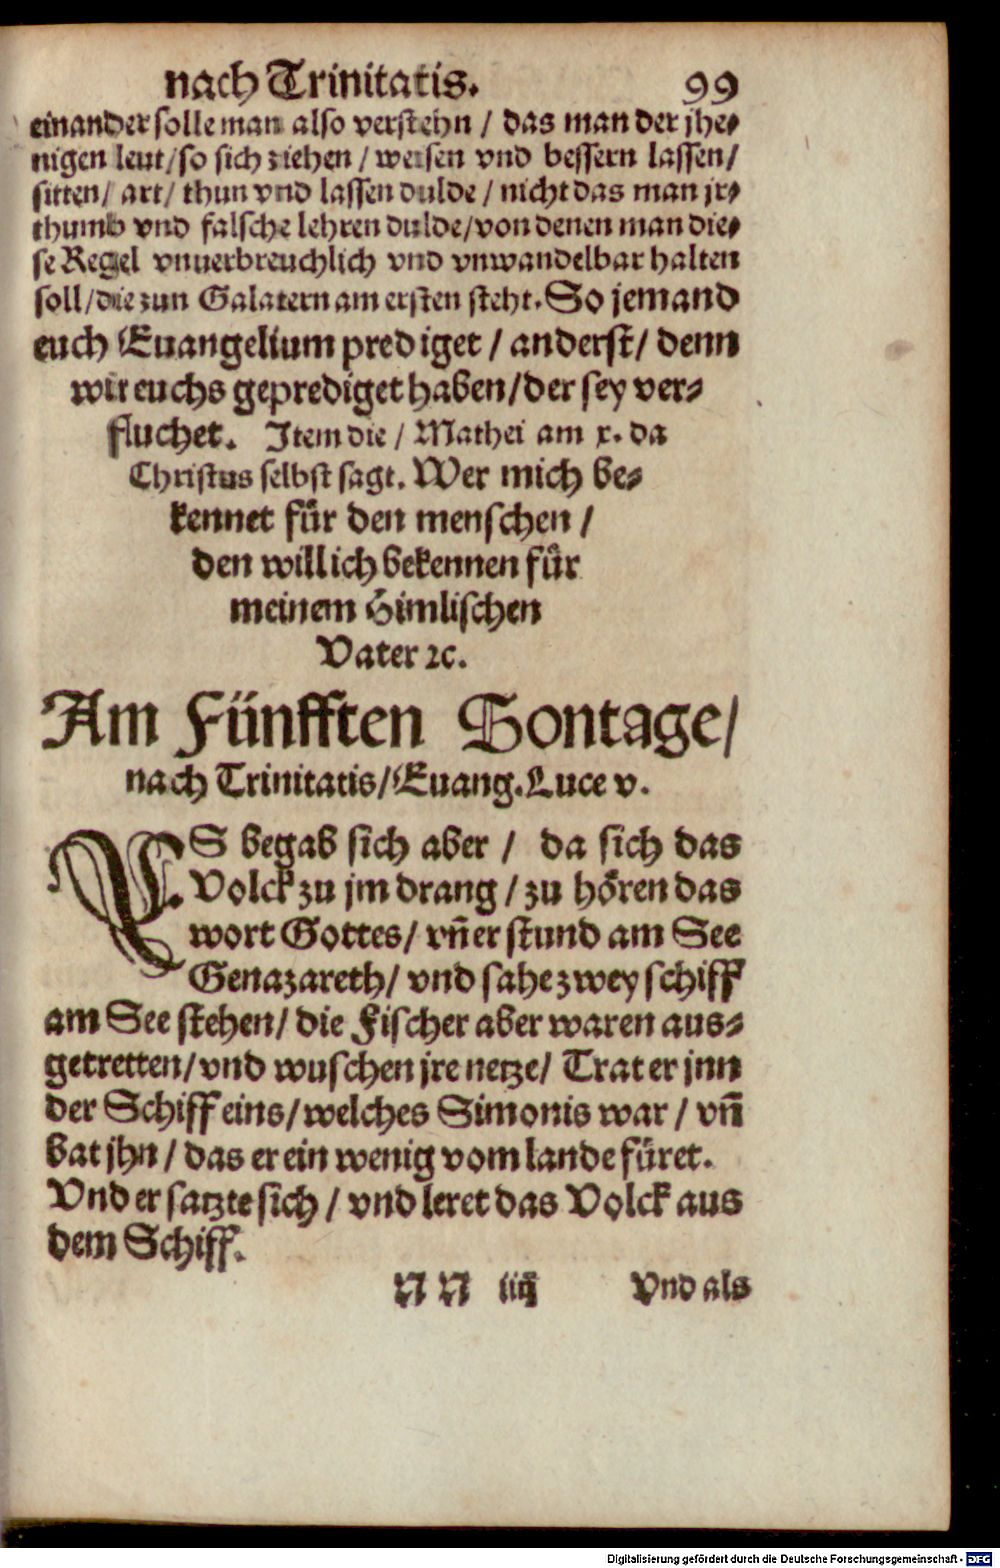 nach Trinitatis. 99
einander solle man also verstehn / das man der jhe⸗
nigen leut / so sich ziehen / weisen vnd bessern lassen /
sitten / art / thun vnd lassen dulde / nicht das man jr⸗
thumb vnd falsche lehren dulde / von denen man die⸗
se Regel vnuerbreuchlich vnd vnwandelbar halten
soll / die zun Galatern am ersten steht. So jemand
euch Euangelium prediget / anderst / denn
wir euchs geprediget haben / der sey ver⸗
fluchet. Item die / Mathei am x. da
Christus selbst sagt. Wer mich be⸗
kennet für den menschen /
den will ich bekennen für
meinem Himlischen
Vater ꝛc.
Am Fünfften Sontage /
nach Trinitatis / Euang. Luce v.
ES begab sich aber / da sich das
Volck zu jm drang / zu hören das
wort Gottes / vñ er stund am See
Genazareth / vnd sahe zwey schiff
am See stehen / die Fischer aber waren aus⸗
getretten / vnd wuschen jre netze / Trat er jnn
der Schiff eins / welches Simonis war / vñ
bat jhn / das er ein wenig vom lande füret.
Vnd er satzte sich / vnd leret das Volck aus
dem Schiff.
N N iiij Vnd als
Digitalisierung gefördert durch die Deutsche Forschungsgemeinschaft - DFG